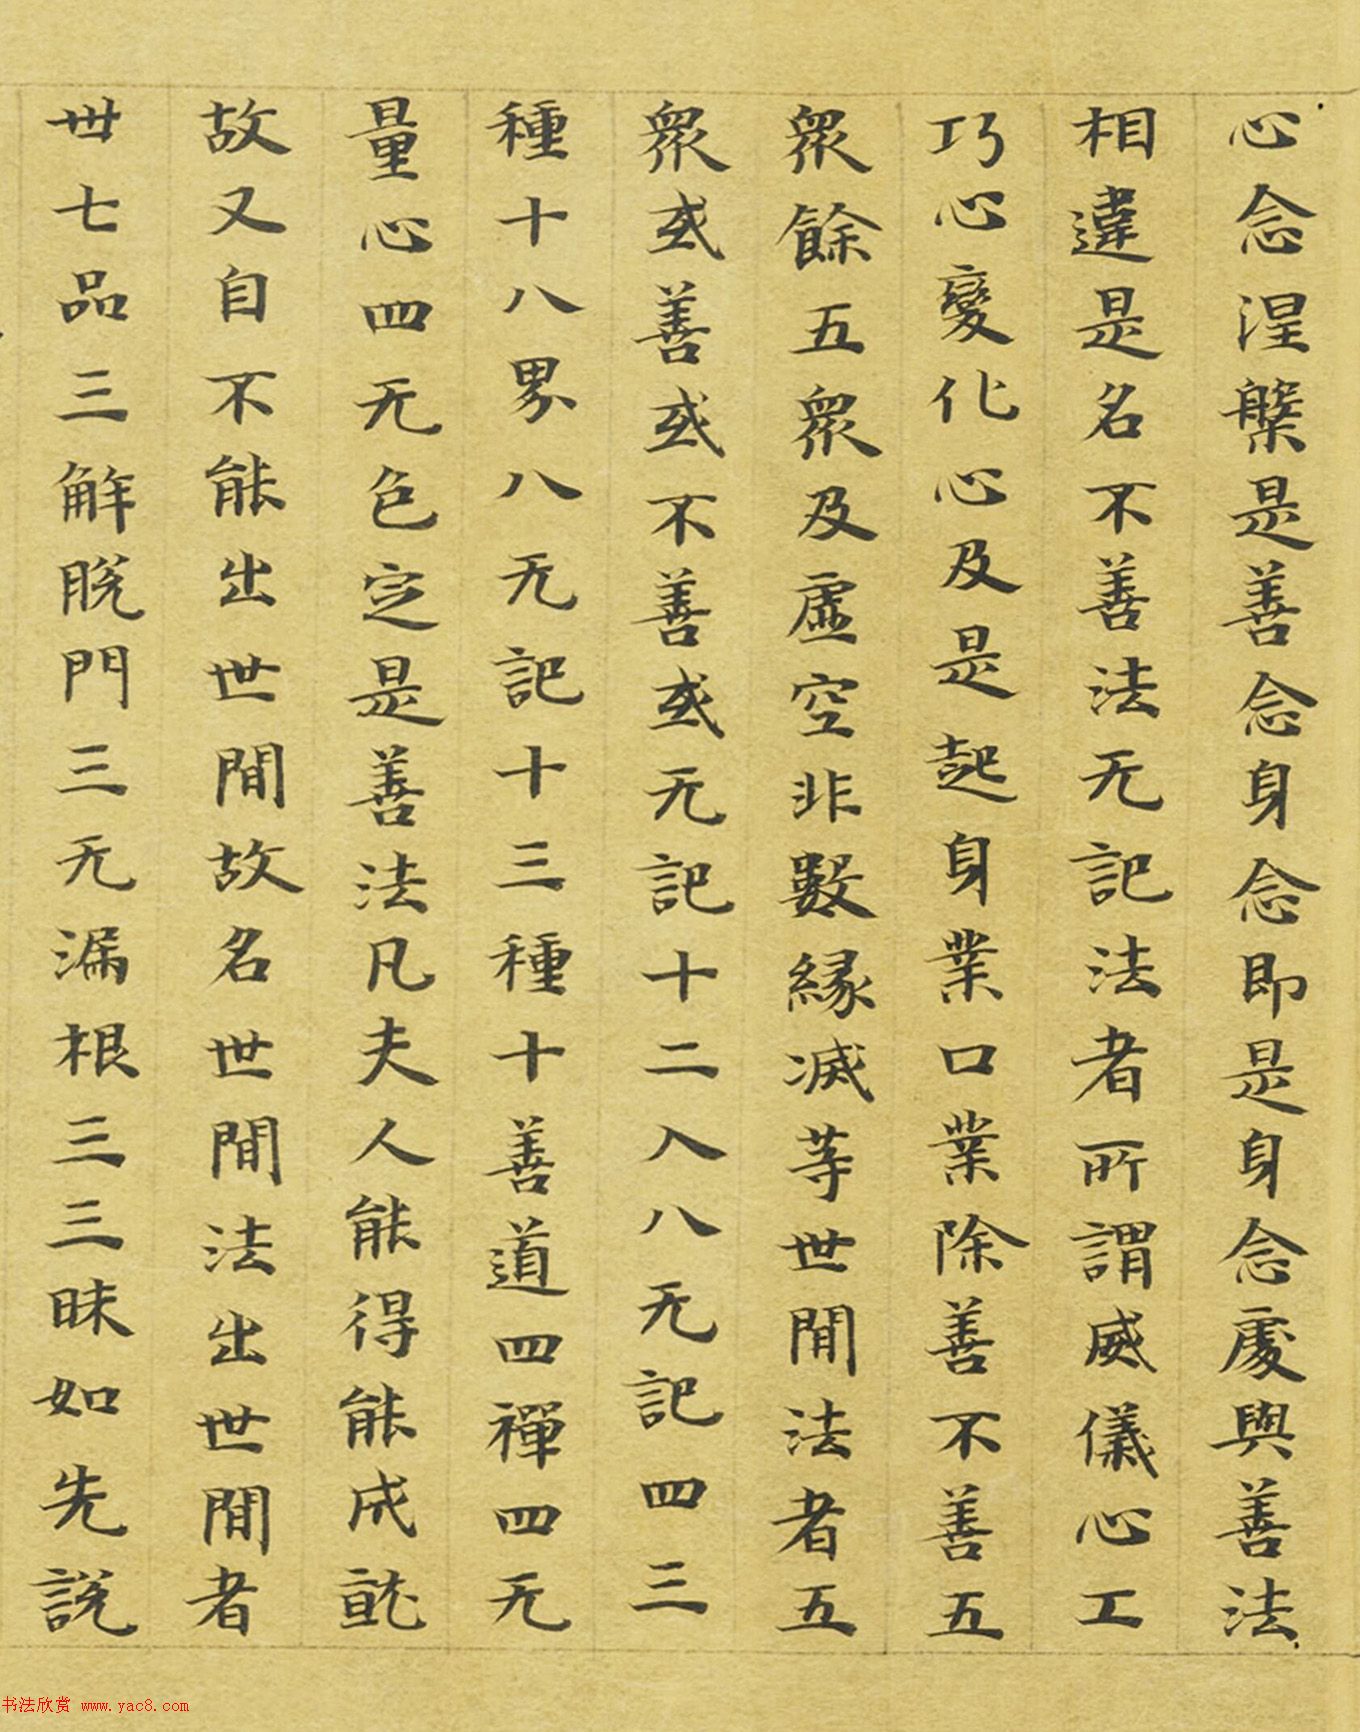 心念涅槃是善念身念即是身念處與善法
相違是名不善法无記法者所謂威儀心工
巧心變化心及是起身業口業除善不善五
衆餘五衆及虛空非數緣滅等世間法者五
衆或善或不善或无記十二入八无記四三
種十八界八无記十三種十善道四禪四无
量心四无色定是善法凡夫人能得能成就
故又自不能出世間故名世間法出世間者
卅七品三解脫門三无漏根三三昧如先說
书法欣赏 www.yac8.com